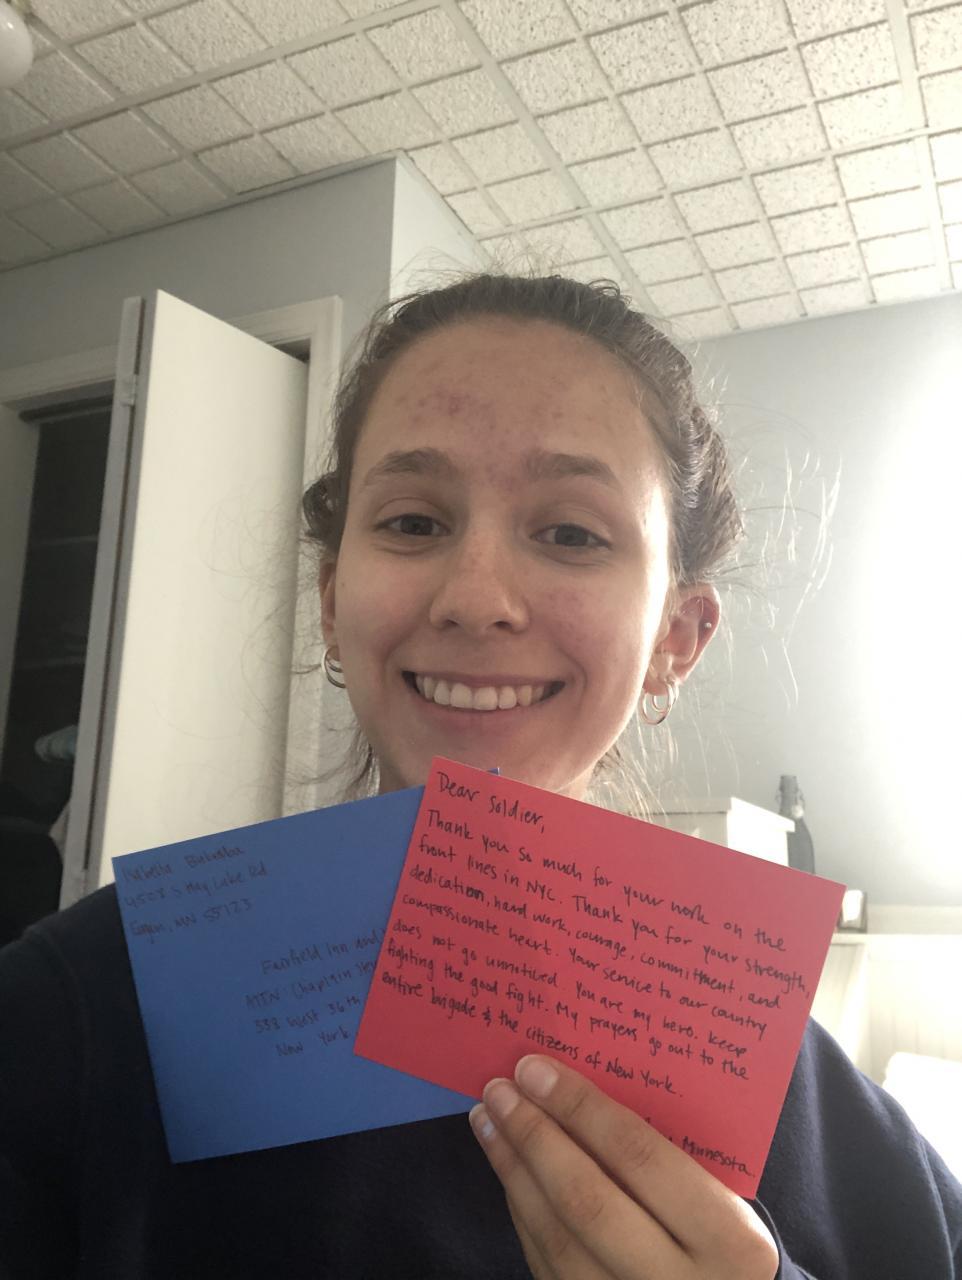 Isabella
4508 S Hay Lake Rd
Eagan, MN 55123
Fairfield Inn and
ATTN: Chaplain
338 West 36th
New York
Dear Soldier,
Thank you so much for your work on the
front lines in NYC. Thank you for your strength,
dedication, hard work, courage, commitment, and
compassionate heart. Your service to our country
does not go unnoticed. You are my hero. Keep
fighting the good fight. My prayers go out to the
entire brigade & the citizens of New York.
Minnesota.